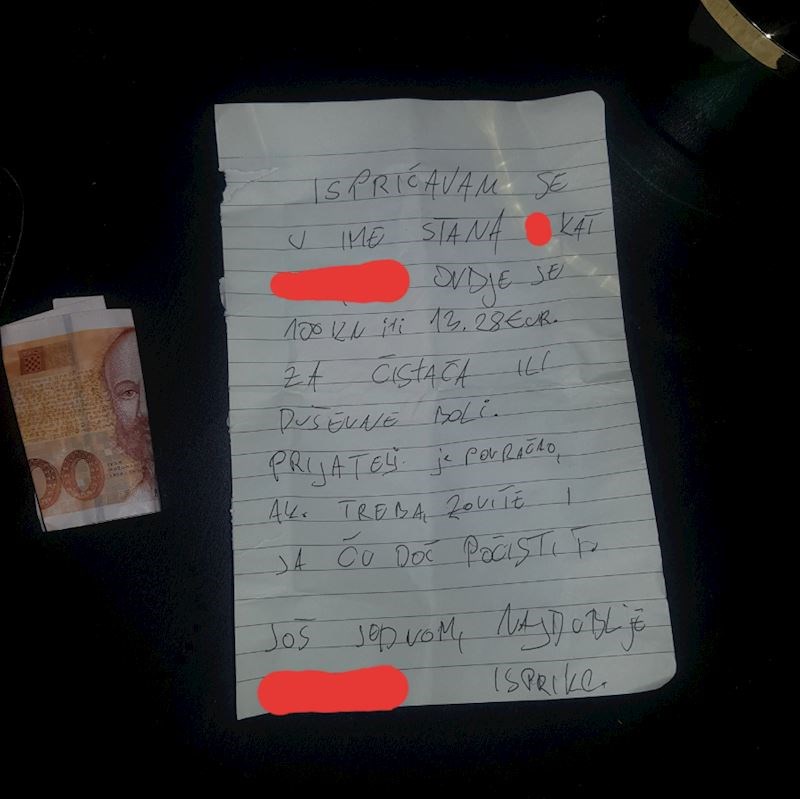 ISPRIČAVAM SE
U IME STANA KAT
OVDJE JE
100 KN ili 13.28 EUR.
ZA ČISTAČA ILI
DUŠEVNE BOLI.
PRIJATELJ je POVRAČAO,
AK. TREBA, ZOVITE I
JA ĆU DOĆ POČISTITI
JOŠ JEDNOM, NAJDUBLJE
ISPRIKE.
00